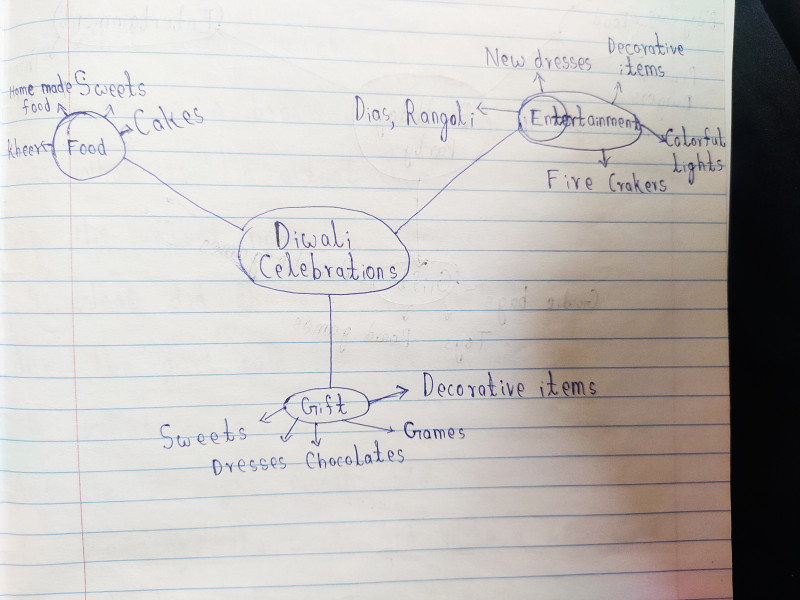 New dresses
Decorative
items
Home made
food
Sweets
Cakes
Kheer
Food
Dias, Rangoli
Entertainment
Colorful
Lights
Fire Crakers
Diwali
Celebrations
Gift
Decorative items
Sweets
Games
Dresses
Chocolates